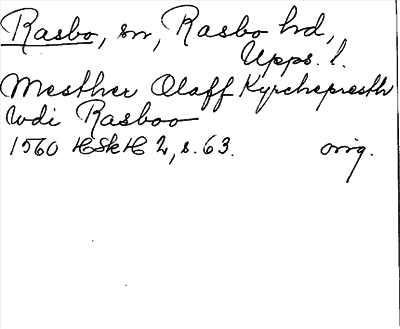 Rasbo, sn, Rasbo hd,
Upps. l.
Mesther Olaff Kyrchepresth
wdi Rasboo
1560 HSkH 2, s. 63. orig.